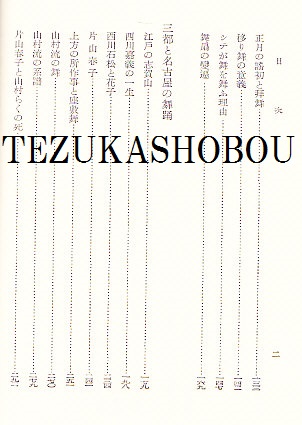 目次
二
正月の謡初と拝舞
移り舞の意義
シテが舞を舞ふ理由……一四七
舞扇の變遷
三都と名古屋の舞踊
江戸の志賀山
西川嘉義の一生
西川石松と花子
片山春子……二四一
上方の所作事と座敷舞……二五一
山村流の舞……二七〇
山村流の系譜……二七九
片山春子と山村らくの死……二九一
TEZUKASHOBOU